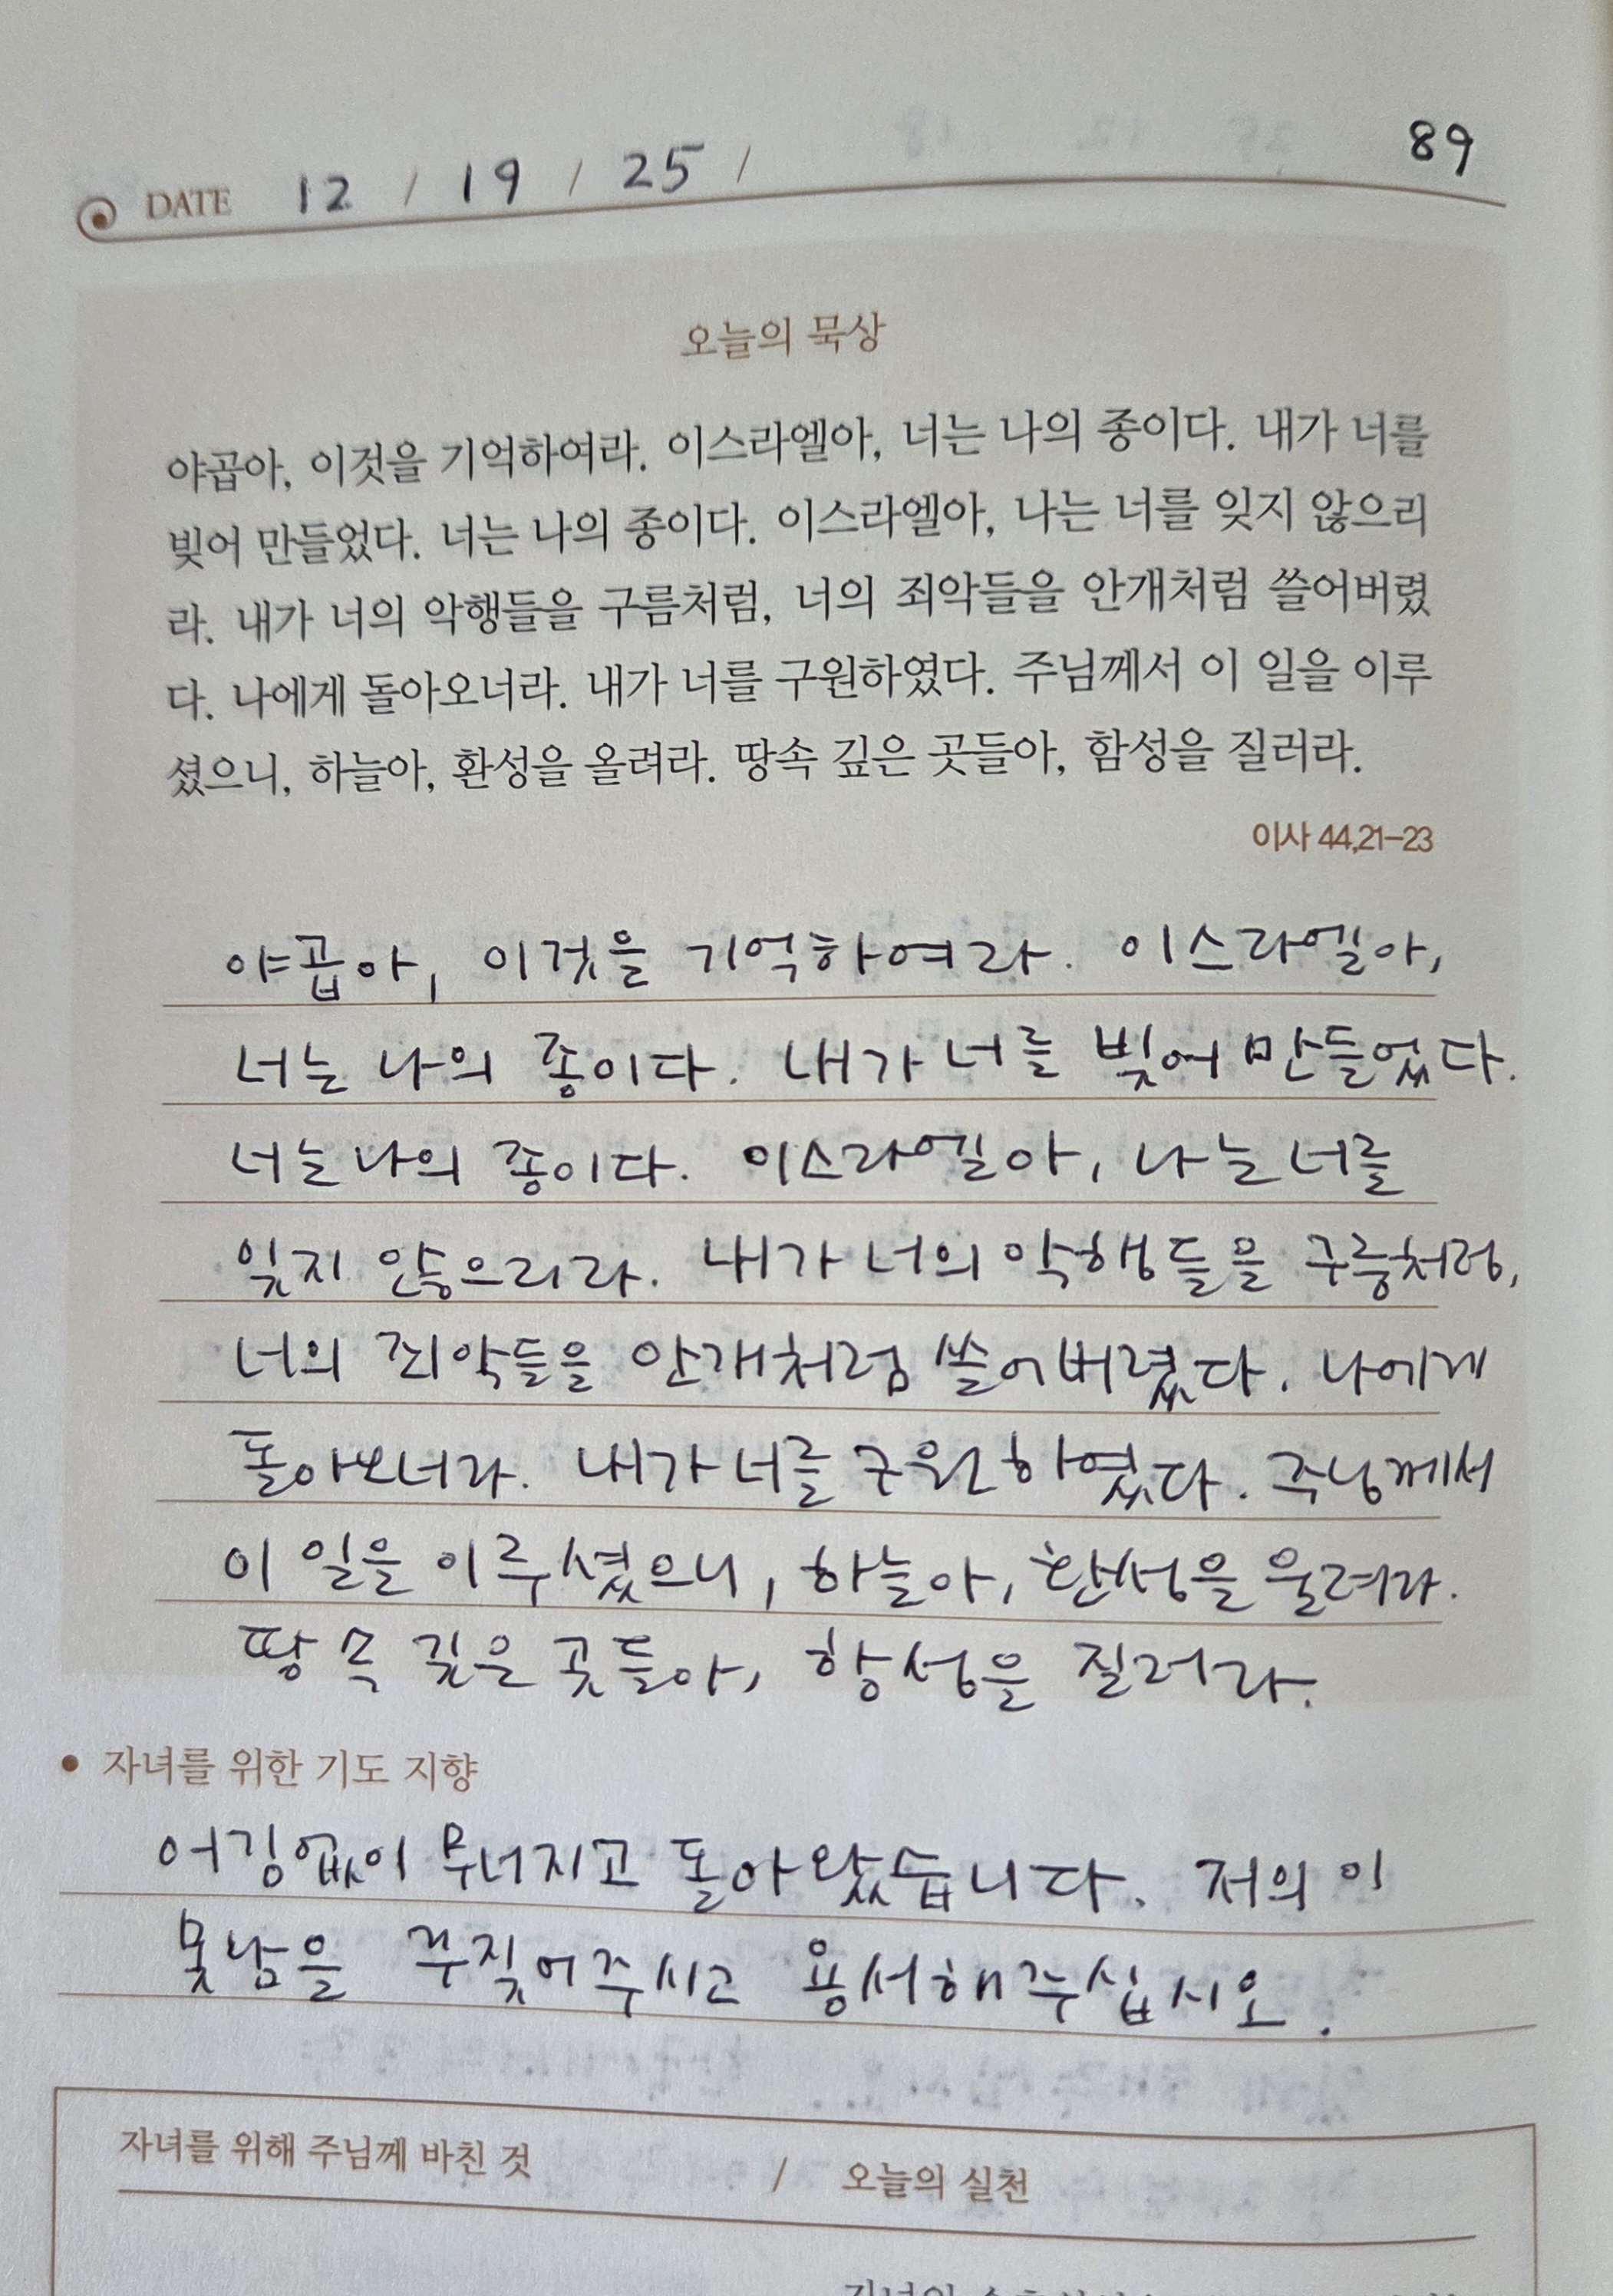 89
DATE 12 / 19 / 25 /
오늘의 묵상
야곱아, 이것을 기억하여라. 이스라엘아, 너는 나의 종이다. 내가 너를
빚어 만들었다. 너는 나의 종이다. 이스라엘아, 나는 너를 잊지 않으리
라. 내가 너의 악행들을 구름처럼, 너의 죄악들을 안개처럼 쓸어버렸
다. 나에게 돌아오너라. 내가 너를 구원하였다. 주님께서 이 일을 이루
셨으니, 하늘아, 환성을 올려라. 땅속 깊은 곳들아, 함성을 질러라.
이사 44,21-23
야곱아, 이것을 기억하여라. 이스라엘아,
너는 나의 종이다. 내가 너를 빚어 만들었다.
너는 나의 종이다. 이스라엘아, 나는 너를
잊지 않으리라. 내가 너의 악행들을 구름처럼,
너의 죄악들을 안개처럼 쓸어버렸다. 나에게
돌아오너라. 내가 너를 구원하였다. 주님께서
이 일을 이루셨으니, 하늘아, 환성을 울려라.
땅 속 깊은 곳들아, 함성을 질러라.
• 자녀를 위한 기도 지향
어김없이 무너지고 돌아왔습니다. 저의 이
못남을 꾸짖어주시고 용서해주십시오.
자녀를 위해 주님께 바친 것 / 오늘의 실천